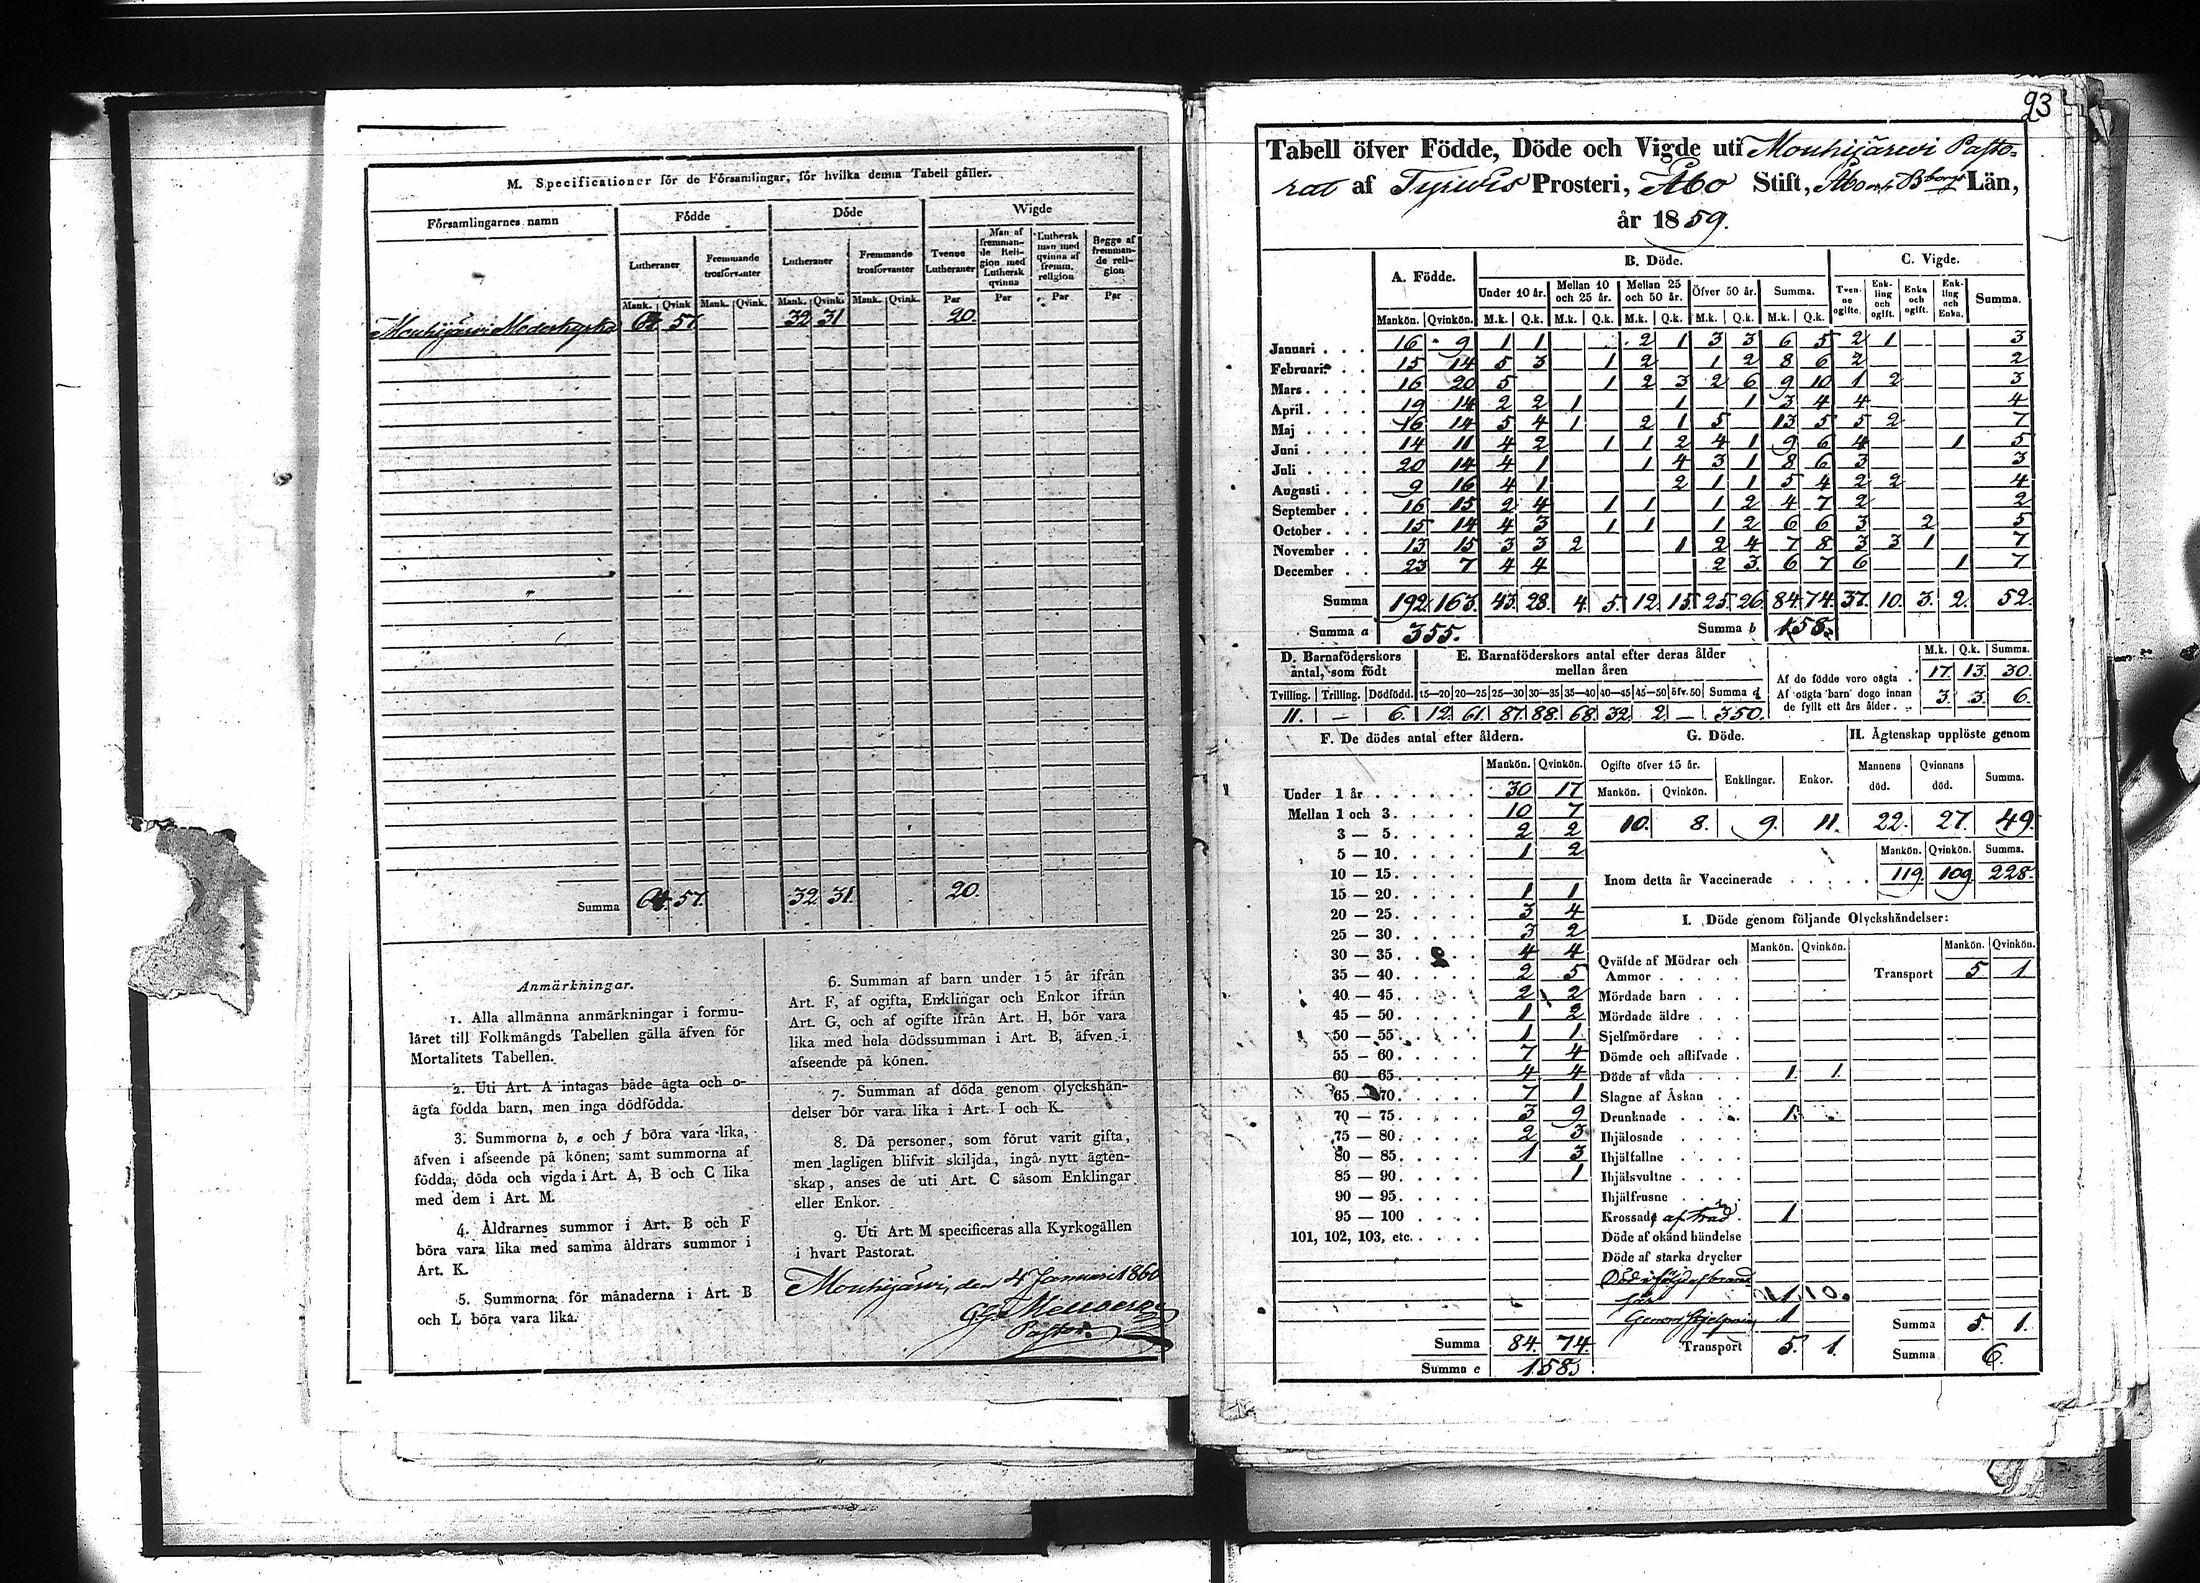 M. Specificationer för de Församlingar, för hvilka denna Tabell gäller.
Församlingarnes namn | Födde | Döde | Wigde
Lutheraner | Fremmande trosförvanter | Lutheraner | Fremmande trosförvanter | Tvenne Lutheraner | Man af fremmande Religion med Luthersk qvinna | Luthersk man med qvinna af fremm. religion | Begge af fremmande religion
Mank. | Qvink | Mank. | Qvink. | Mank. | Qvink. | Mank. | Qvink. | Par | Par | Par | Par
Mouhijärvi Moderkyrka 64 57 32 31 20
Summa 64. 57. 32 31. 20.
Anmärkningar.
1. Alla allmänna anmärkningar i formu-
läret till Folkmängds Tabellen gälla äfven för
Mortalitets Tabellen.
2. Uti Art. A intagas både ägta och o-
ägta födda barn, men inga dödfödda.
3. Summorna b, e och f böra vara lika,
äfven i afseende på könen; samt summorna af
födda, döda och vigda i Art. A, B och C lika
med dem i Art. M.
4. Åldrarnes summor i Art. B och F
böra vara lika med samma åldrars summor i
Art. K.
5. Summorna för månaderna i Art. B
och L böra vara lika.
6. Summan af barn under 15 år ifrån
Art. F, af ogifta, Enklingar och Enkor ifrån
Art. G, och af ogifte ifrån Art. H, bör vara
lika med hela dödssumman i Art. B, äfven i
afseende på könen.
7. Summan af döda genom olyckshän-
delser bör vara lika i Art. I och K.
8. Då personer, som förut varit gifta,
men lagligen blifvit skiljda, ingå nytt ägten-
skap, anses de uti Art. C såsom Enklingar
eller Enkor.
9. Uti Art. M specificeras alla Kyrkogällen
i hvart Pastorat.
Mouhijärvi, den 4 Januari 1860
Pastor.
93
Tabell öfver Födde, Döde och Vigde uti Mouhijärvi Pasto-
rat af Tyrvis Prosteri, Åbo Stift, Åbo och Bborgs Län,
år 1859.
A. Födde. | B. Döde. | C. Vigde.
Under 10 år. | Mellan 10 och 25 år. | Mellan 25 och 50 år. | Öfver 50 år. | Summa. | Tvenne ogifte. | Enkling och ogift. | Enka och ogift. | Enkling och Enka. | Summa.
Mankön. | Qvinkön. | M.k. | Q.k. | M.k. | Q.k. | M.k. | Q.k. | M.k. | Q.k. | M.k. | Q.k.
Januari . . . 16 9 1 1 2 1 3 3 6 5 2 1 3
Februari . . 15 14 5 3 1 2 1 2 8 6 2 2
Mars . . . . 16 20 5 1 2 3 2 6 9 10 1 2 3
April . . . . 19 14 2 2 1 1 1 3 4 4 4
Maj . . . . 16 14 5 4 1 2 1 5 13 5 5 2 7
Juni . . . . 14 11 4 2 1 1 2 4 1 9 6 4 1 5
Juli . . . . 20 14 4 1 1 4 3 1 8 6 3 3
Augusti . . . 9 16 4 1 2 1 1 5 4 2 2 4
September . . 16 15 2 4 1 1 1 2 4 7 2 2
October . . . 15 14 4 3 1 1 1 2 6 6 3 2 5
November . . 13 15 3 3 2 1 2 4 7 8 3 3 1 7
December . . 23 7 4 4 2 3 6 7 6 1 7
Summa 192. 163. 43. 28. 4. 5. 12. 15. 25. 26. 84. 74. 37. 10. 3. 2. 52.
Summa a 355. Summa b 158.
D. Barnaföderskors antal, som födt
Tvilling. | Trilling. | Dödfödd.
11. — 6.
E. Barnaföderskors antal efter deras ålder mellan åren
15—20 | 20—25 | 25—30 | 30—35 | 35—40 | 40—45 | 45—50 | öfv. 50 | Summa d
12. 61. 87. 88. 68. 32. 2. — 350.
M.k. | Q.k. | Summa.
Af de födde voro oägta . 17. 13. 30.
Af oägta barn dogo innan
de fyllt ett års ålder . . 3. 3. 6.
F. De dödes antal efter åldern.
Mankön. | Qvinkön.
Under 1 år . . . . . . 30 17
Mellan 1 och 3. . . . . 10 7
3 — 5. . . . . 2 2
5 — 10. . . . . 1 2
10 — 15. . . . .
15 — 20. . . . . 1 1
20 — 25. . . . . 3 4
25 — 30. . . . . 3 2
30 — 35. . . . . 4 4
35 — 40. . . . . 2 5
40 — 45. . . . . 2 2
45 — 50. . . . . 1 2
50 — 55. . . . . 1 1
55 — 60. . . . . 7 4
60 — 65. . . . . 4 4
65 — 70. . . . . 7 1
70 — 75. . . . . 3 9
75 — 80. . . . . 2 3
80 — 85. . . . . 1 3
85 — 90. . . . . 1
90 — 95. . . . .
95 — 100 . . . .
101, 102, 103, etc. . . . .
Summa 84. 74.
Summa c 158.
G. Döde.
Ogifte öfver 15 år. | Enklingar. | Enkor.
Mankön. | Qvinkön.
10. 8. 9. 11.
H. Ägtenskap upplöste genom
Mannens död. | Qvinnans död. | Summa.
22. 27. 49.
Mankön. | Qvinkön. | Summa.
Inom detta år Vaccinerade . . . . . 119. 109. 228.
I. Döde genom följande Olyckshändelser:
Mankön. | Qvinkön. | Mankön. | Qvinkön.
Qväfde af Mödrar och
Ammor . . . .
Transport 5 1
Mördade barn . . .
Mördade äldre . . .
Sjelfmördare . . .
Dömde och aflifvade .
Döde af våda . . . 1. 1.
Slagne af Åskan . .
Drunknade . . . . 1.
Ihjälosade . . . .
Ihjälfallne . . . .
Ihjälsvultne . . . .
Ihjälfrusne . . . .
Krossade af träd . 1
Döde af okänd händelse
Döde af starka drycker
Död i följd af brand
sår 1
Genom 1
Transport 5. 1.
Summa 5. 1.
Summa 6.